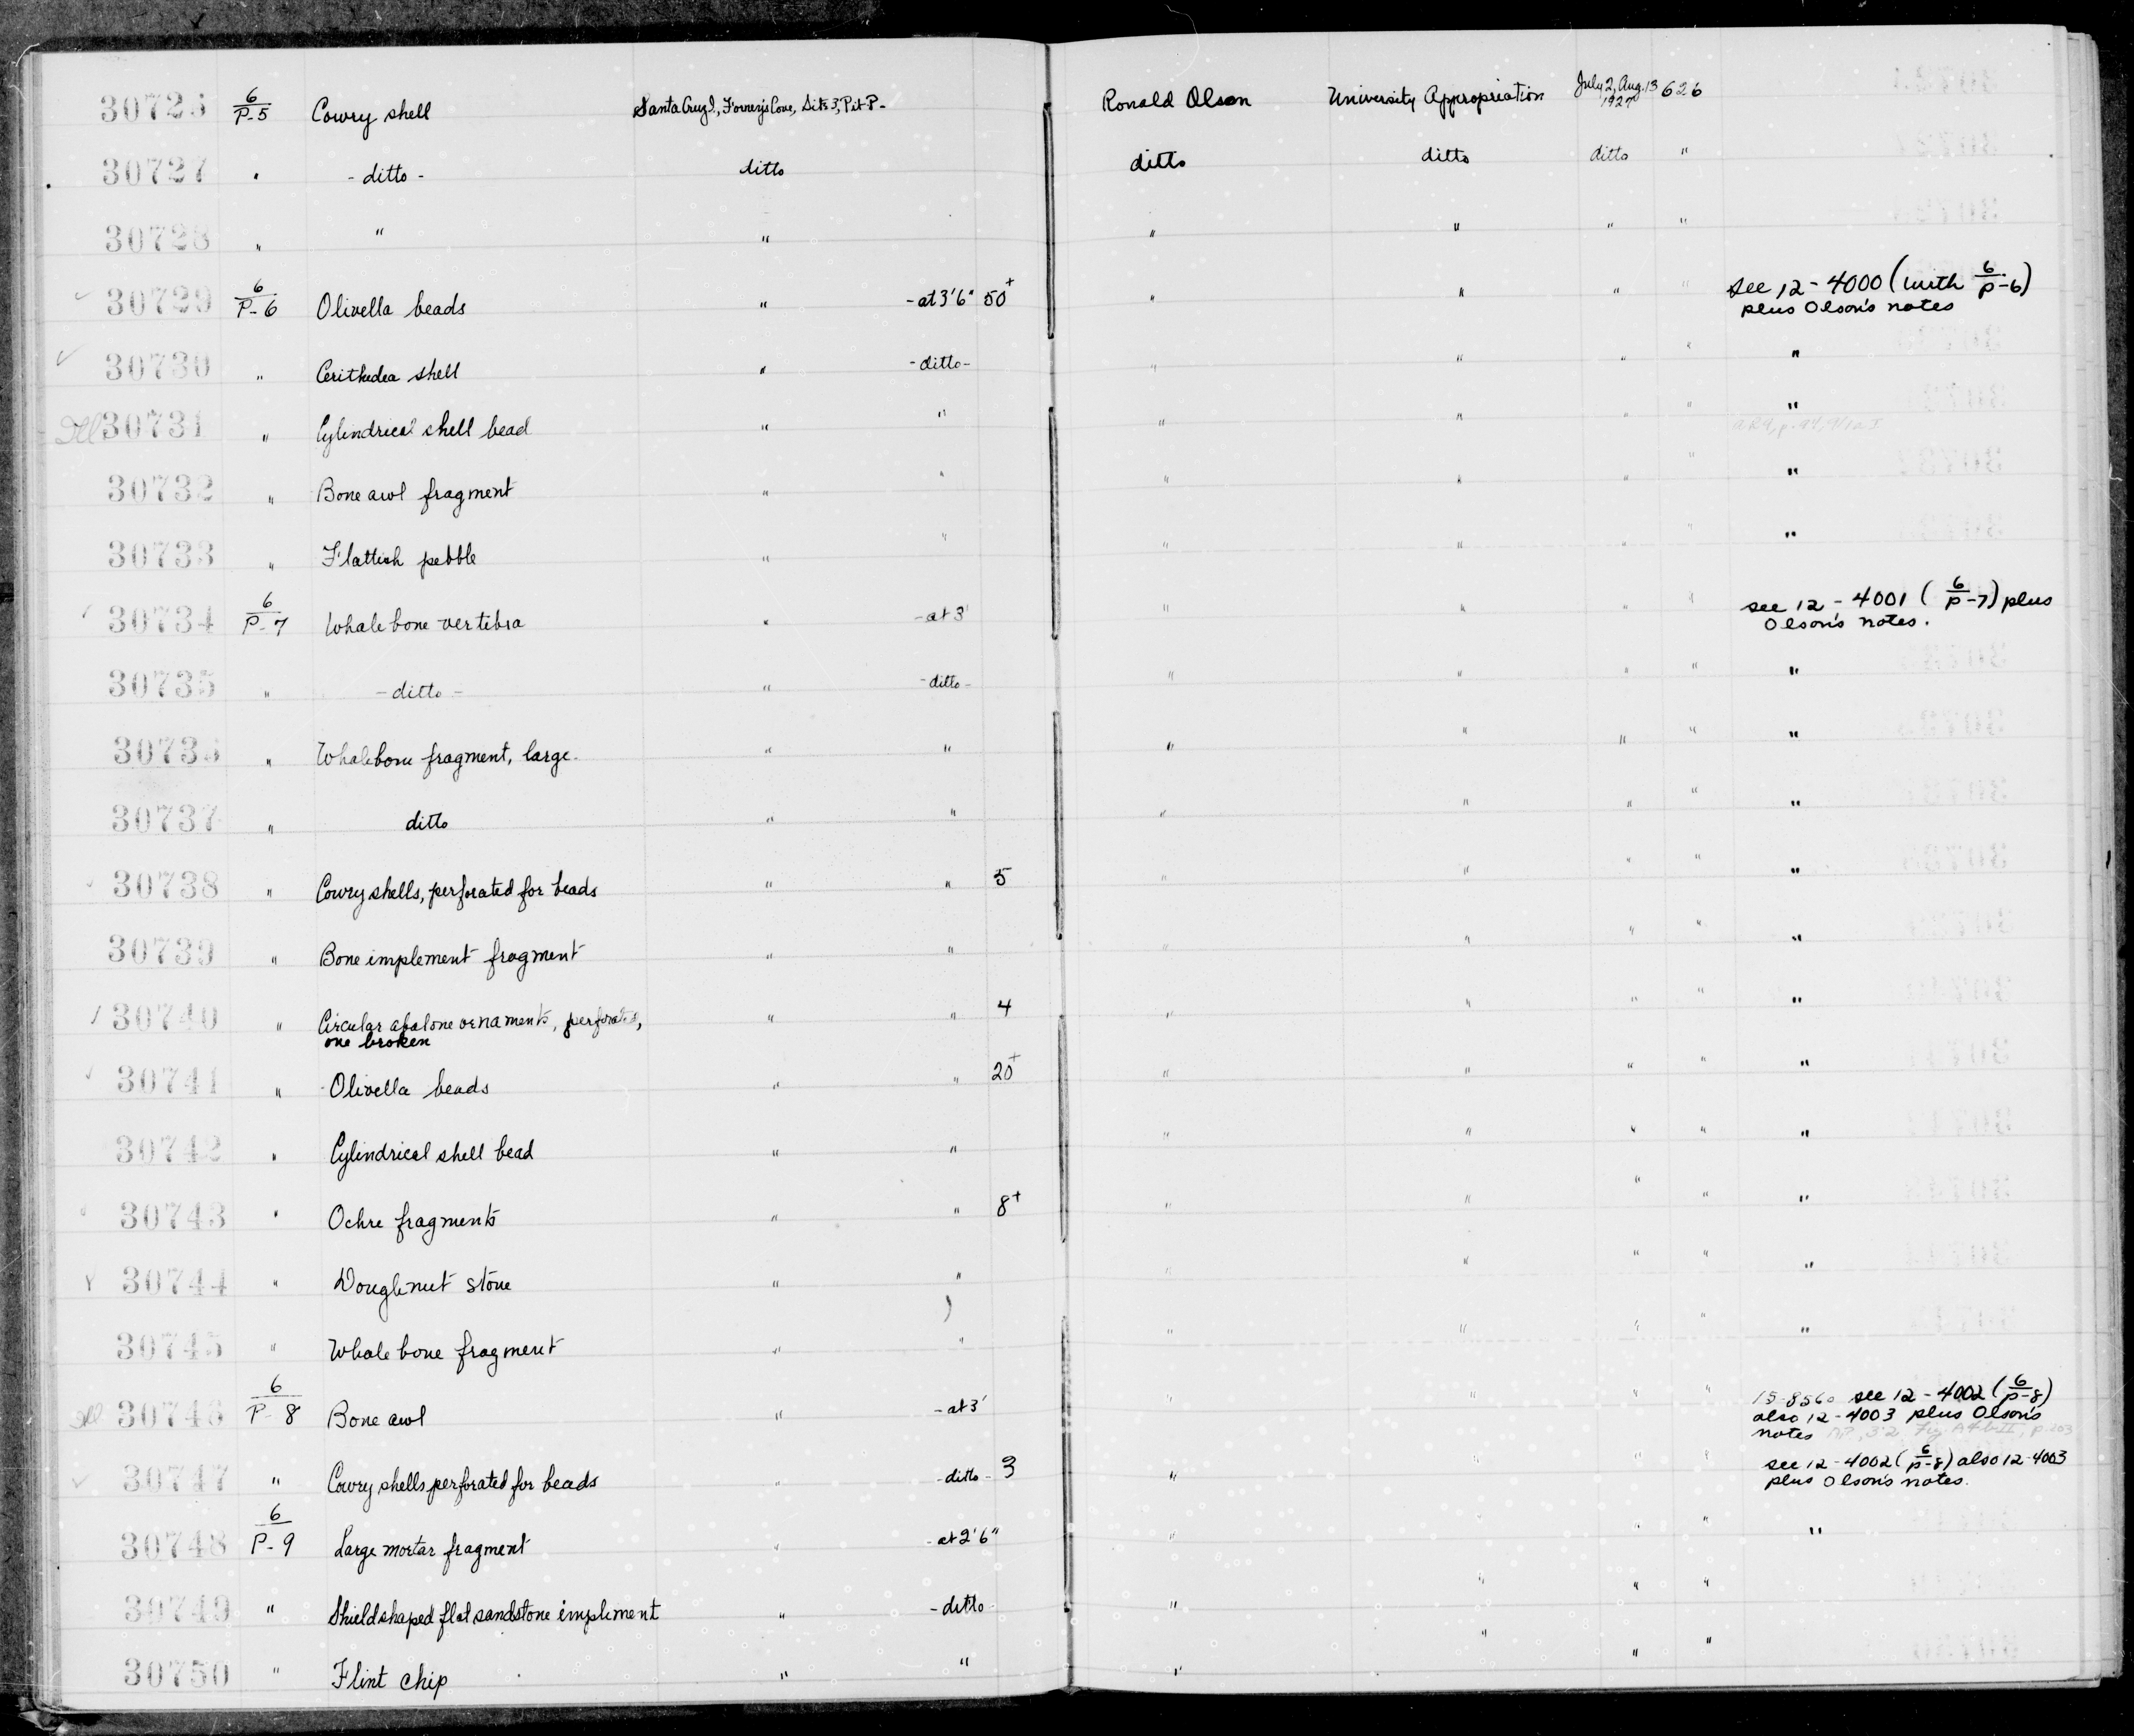 30726 6/P-5 Cowry shell Santa Cruz I, Forney's Cove, Site 3, Pit P- Ronald Olson University Appropriation July 2, Aug. 13 1927 626
30727 " - ditto - ditto ditto ditto ditto "
30728 " " " " " " "
30729 6/P-6 Olivella beads " - at 3'6" 50+ " " " " see 12-4000 (with 6/P-6)
plus Olson's notes
30730 " Cerithedea shell " - ditto - " " " " "
30731 " Cylindrical shell bead " " " " " " "
30732 " Bone awl fragment " " " " " " "
30733 " Flattish pebble " " " " " " "
30734 6/P-7 Whale bone vertibra " - at 3' " " " " see 12-4001 ( 6/P-7) plus
Olson's notes.
30735 " - ditto - " - ditto - " " " " "
30736 " Whalebone fragment, large. " " " " " " "
30737 " ditto " " " " " " "
30738 " Cowry shells, perforated for beads " " 5 " " " " "
30739 " Bone implement fragment " " " " " " "
30740 " Circular abalone ornaments, perforated, " " 4 " " " " "
one broken
30741 " Olivella beads " " 20+ " " " " "
30742 " Cylindrical shell bead " " " " " " "
30743 " Ochre fragments " " 8+ " " " " "
30744 " Doughnut stone " " " " " " "
30745 " Whale bone fragment " " " " " " "
30746 6/P-8 Bone awl " - at 3' " " " " 15-8560 see 12-4002 (6/P-8)
also 12-4003 plus Olson's
notes
30747 " Cowry shells perforated for beads " - ditto - 3 " " " " see 12-4002 (6/P-8) also 12-4003
plus Olson's notes.
30748 6/P-9 Large mortar fragment " - at 2'6" " " " " "
30749 " Shield shaped flat sandstone impliment " - ditto " " " "
30750 " Flint chip " " " " " "